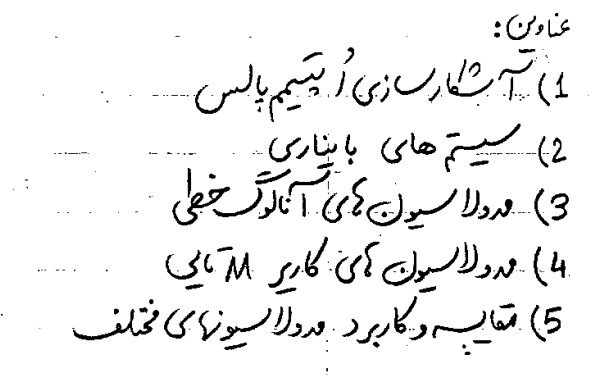 عناوین:
1) آشکارسازی اُپتیمم پالس
2) سیستم های بایناری
3) مدولاسیون های آنالوگ خطی
4) مدولاسیون های کاریر M تایی
5) مقایسه و کاربرد مدولاسیونهای مختلف